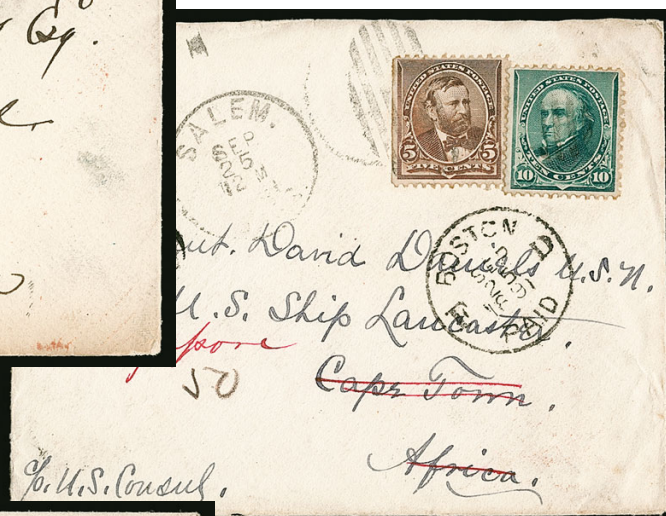 Esq.
SALEM.
UNITED STATES POSTAGE
5 5
FIVE CENTS
UNITED STATES POSTAGE
10 10
TEN CENTS
BOSTON
PAID
David Daniels U.S.N.
U.S. Ship Lancaster
50
Cape Town.
Africa.
c/o. U.S. Consul.